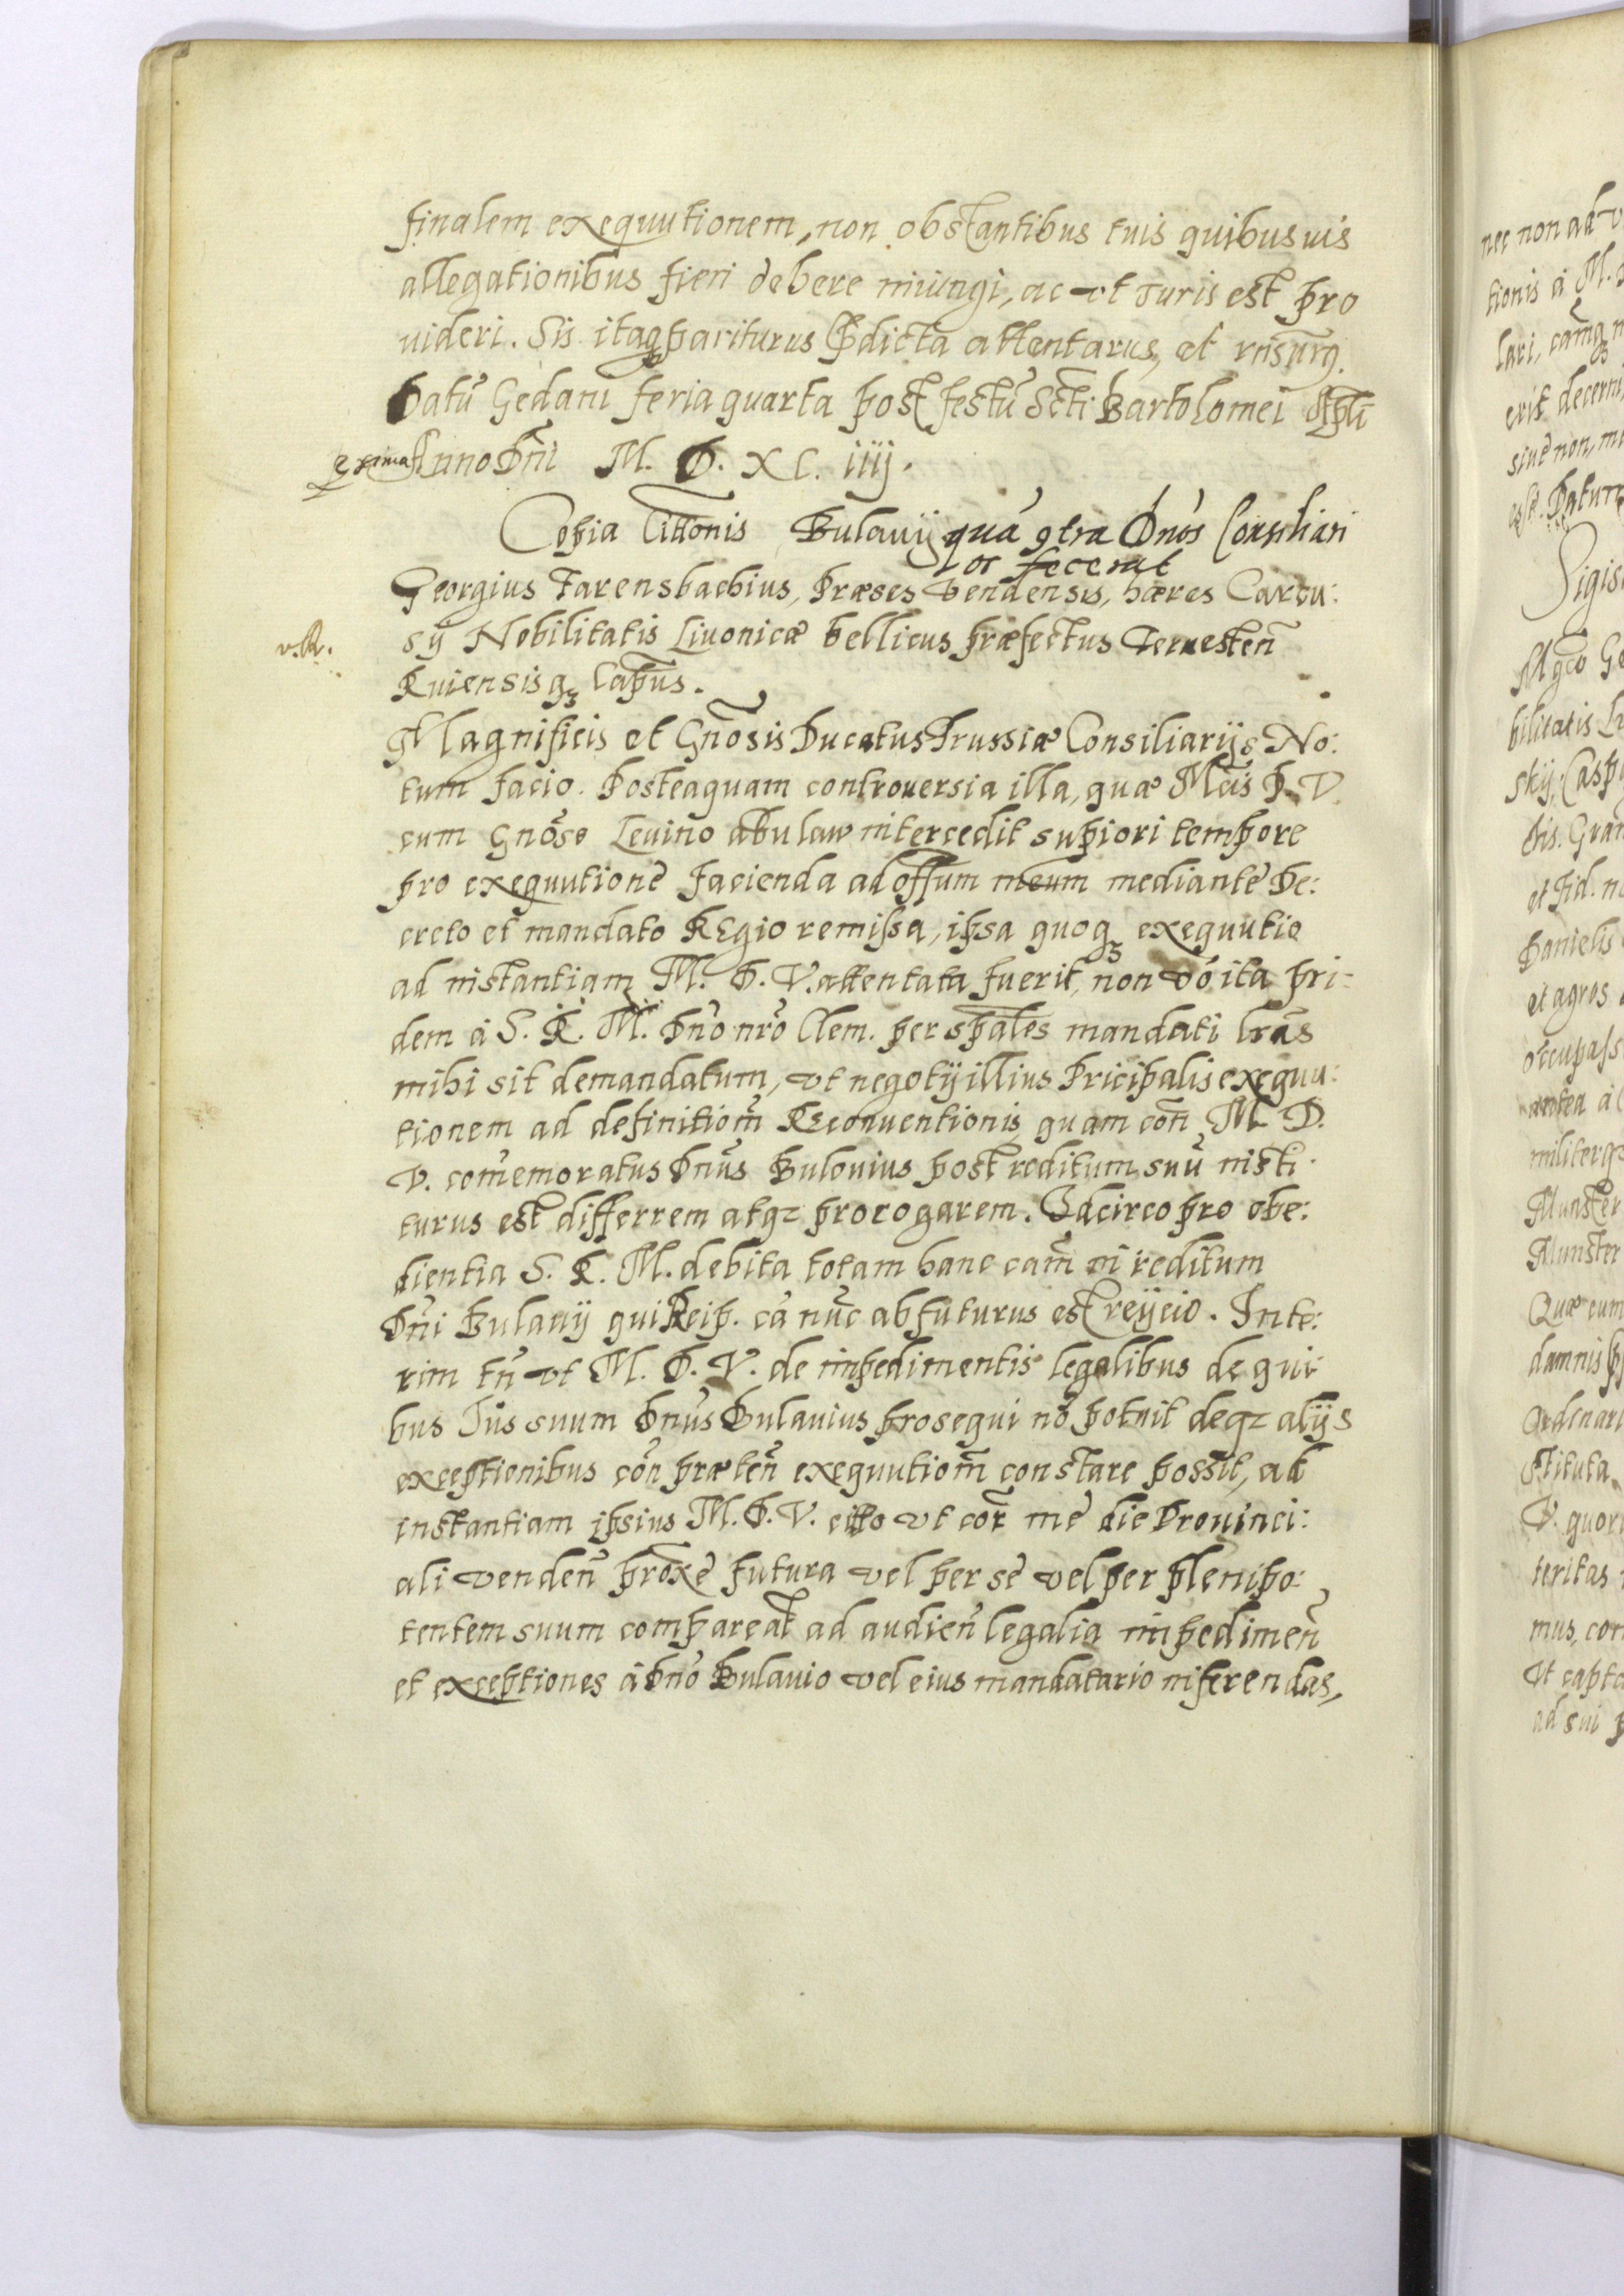 finalem exequutionem, non obstantibus tuis quibusuis
allegationibus fieri debere iniungi, ac vt Juris est pro
uideri. Sis itaq₃ pariturus p̄dicta attentarus, et
Datũ Gedani feria quarta post festũ Scti Bartolomei Apłi
Anno Dn̄i M. D. XC. iiij.
Copia Cittonis Bulauij quã 9tra Dnõs Consiliari
os fecerat
Georgius Farensbachius, Præses Vendensis, hæres Carcu:
v. R.
sÿ Nobilitatis Liuonicæ bellicus præfectus Teruesten̄
Ruiensisq₃ Capn̄us.
Magnificis et Gn̄osis Ducatus Prussiæ Consiliarijs No:
tum facio. Posteaquam controuersia illa, quæ Mcis D. V.
cum Gnõso Leuino a Bulaw intercedit supiori tempore
pro exequutione facienda ad offum meum mediante De:
creto et mandato REgio remissa, ipsa quoq₃ exequutio
ad instantiam M. D. V. attentata fuerit, non võ ita pri-
dem à S. R. M. Dnõ nrõ Clem. per spāles mandati lrãs
mihi sit demandatum, vt negotij illius Pricipalis exequu:
tionem ad definitiom̄ REconuentionis, quam con̄ M. D.
V. com̃emoratus Dnũs Bulouius post reditum suũ insti:
turus est differrem atqz prorogarem. Idcirco pro obe:
dientia S. R. M. debita totam hanc cam̄ in reditum
Dn̄i Bulauij qui Reip. cã nũc abfuturus est reijcio. Inte:
rim tn̄ vt M. D. V. de impedimentis legalibus de qui
bus Jus suum Dnũs Bulauius prosequi nõ potuit deqz alijs
exceptionibus con̄ præten̄ exequutiom̄ constare possit, ad
instantiam ipsius M. D. V. citto vt cor̄ me die Prouinci:
ali Venden̄ prox̄e futura vel per se vel per plenipo:
tentem suum compareat ad audien̄ legalia impedimen̄
et exceptiones à Dnõ Bulauio vel eius mandatario inferendas,